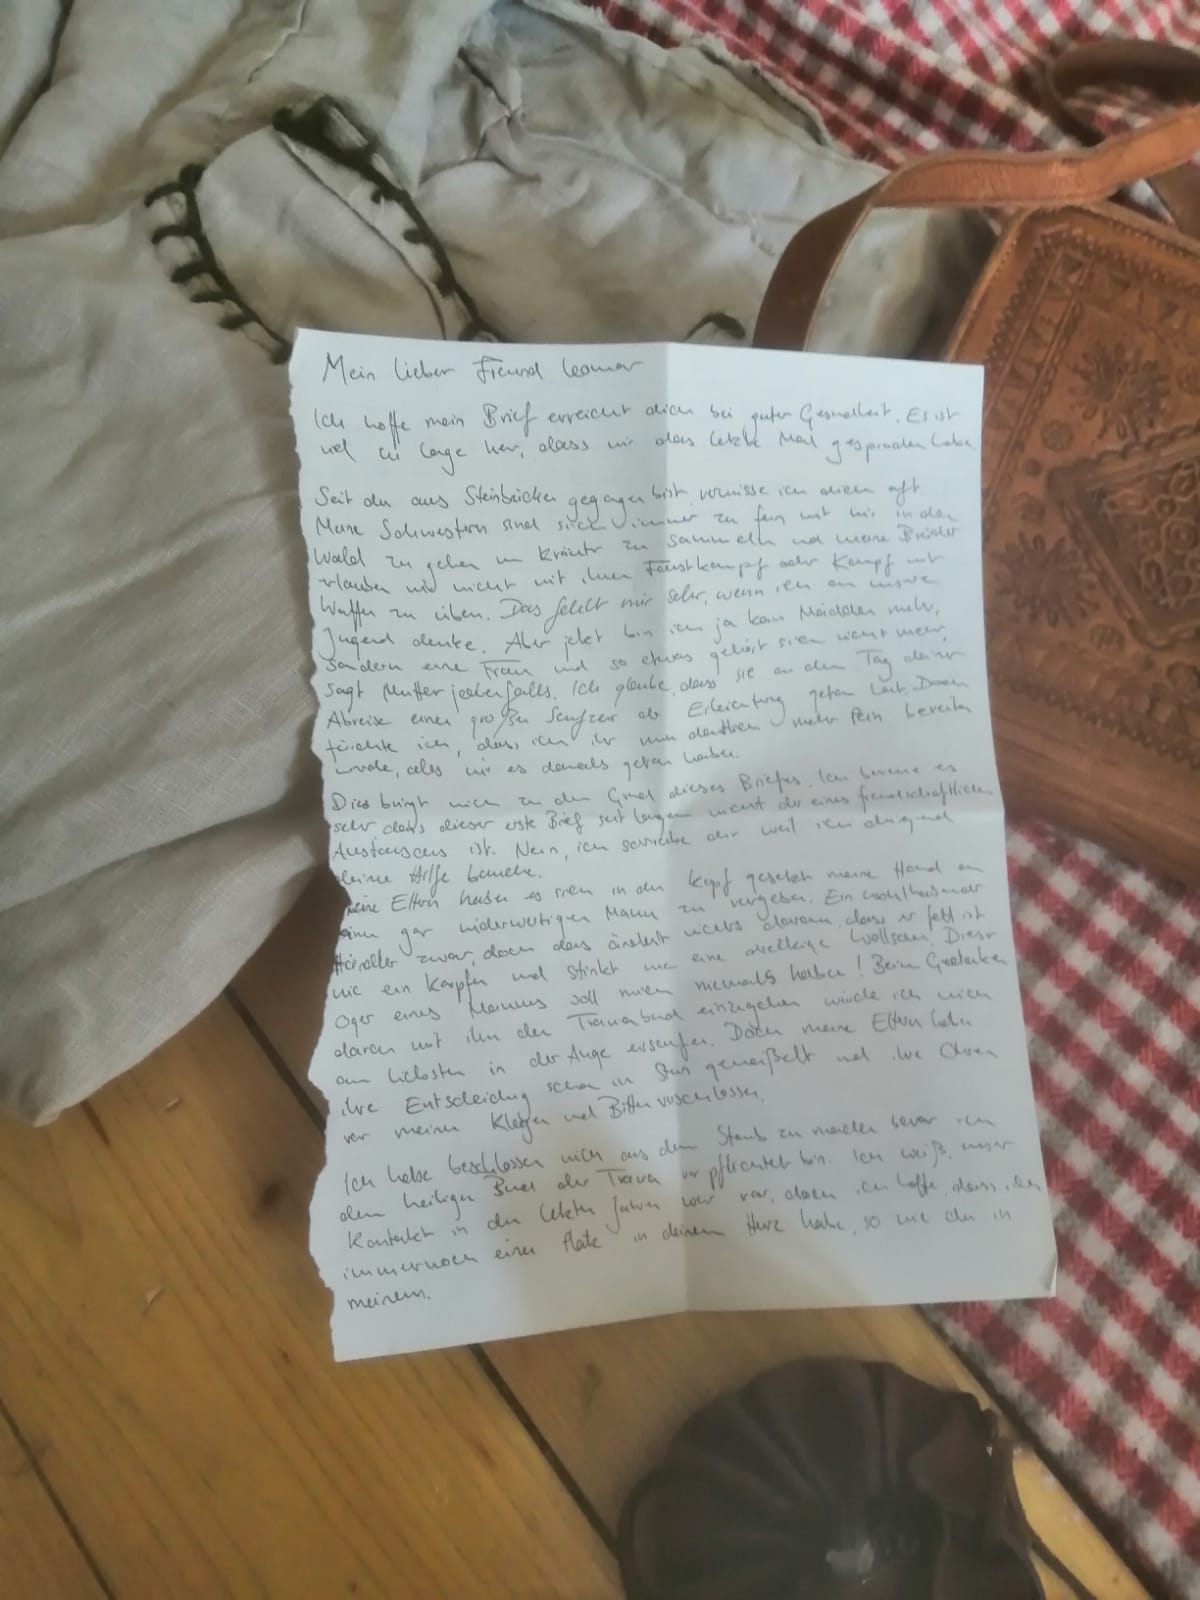 Mein lieber Freund Leomar
Ich hoffe mein Brief erreicht dich bei guter Gesundheit. Es ist
viel zu lange her, dass wir das letzte Mal gesprochen haben.
Seit du aus Steinbrücken gegangen bist vermisse ich dich oft.
Meine Schwestern sind sich immer zu fein mit mir in den
Wald zu gehen um Kräuter zu sammeln und meine Brüder
erlauben mir nicht mit ihnen Faustkampf oder Kampf mit
Waffen zu üben. Das fehlt mir sehr, wenn ich an unsere
Jugend denke. Aber jetzt bin ich ja kein Mädchen mehr,
sondern eine Frau und so etwas gehört sich nicht mehr,
sagt Mutter jedenfalls. Ich glaube, dass sie an dem Tag deiner
Abreise einen großen Seufzer der Erleichterung getan hat. Doch
fürchte ich, dass ich ihr nun mehr Pein bereiten
werde, als wir es damals getan haben.
Dies bringt mich zu dem Grund dieses Briefes. Ich bereue es
sehr dass dieser erste Brief seit langem nicht der eines freundschaftlichen
Austauschs ist. Nein, ich schreibe dir weil ich dringend
deine Hilfe benötige.
Meine Eltern haben es sich in den Kopf gesetzt meine Hand an
einen gar widerwertigen Mann zu vergeben. Ein wohlhabender
Händler zwar, doch das ändert nichts daran, dass er fett ist
wie ein Karpfen und stinkt wie eine dreckige Wollsau. Dieser
Oger eines Mannes soll mich niemals haben! Beim Gedanken
daran mit ihm den Traviabund einzugehen würde ich mich
am liebsten in der Ange ersaufen. Doch meine Eltern haben
ihre Entscheidung schon in Stein gemeißelt und ihre Ohren
vor meinen Klagen und Bitten verschlossen.
Ich habe beschlossen mich aus dem Staub zu machen bevor ich
dem heiligen Bund der Travia verpflichtet bin. Ich weiß, unser
Kontakt in den letzten Jahren war rar, doch ich hoffe, dass ich
immernoch einen Platz in deinem Herz habe, so wie du in
meinem.